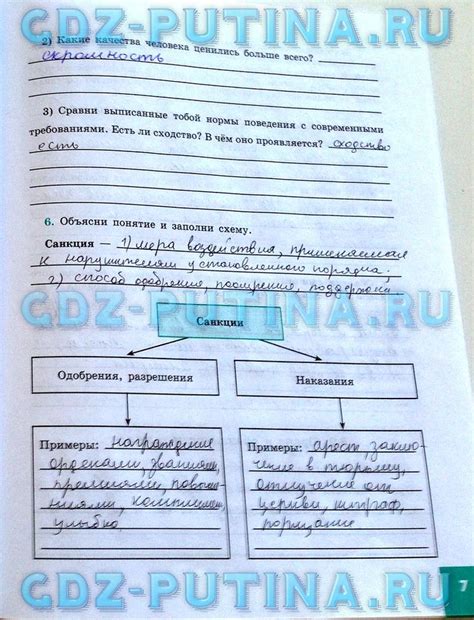 GDZ-PUTINA.RU
2) Какие качества человека ценились больше всего?
скромность
3) Сравни выписанные тобой нормы поведения с современными
требованиями. Есть ли сходство? В чём оно проявляется? сходство
есть
6. Объясни понятие и заполни схему.
Санкция — 1) мера воздействия, применяемая
к нарушителям установленного порядка;
2) способ одобрения, поощрения, поддержки
GDZ-PUTINA.RU
Санкции
Одобрения, разрешения
Наказания
Примеры: награждение
орденами, званиями,
премиями,
улыбка
Примеры: арест, заклю-
чение в тюрьму,
отлучение от
церкви, штраф,
порицание
GDZ-PUTINA.RU
7